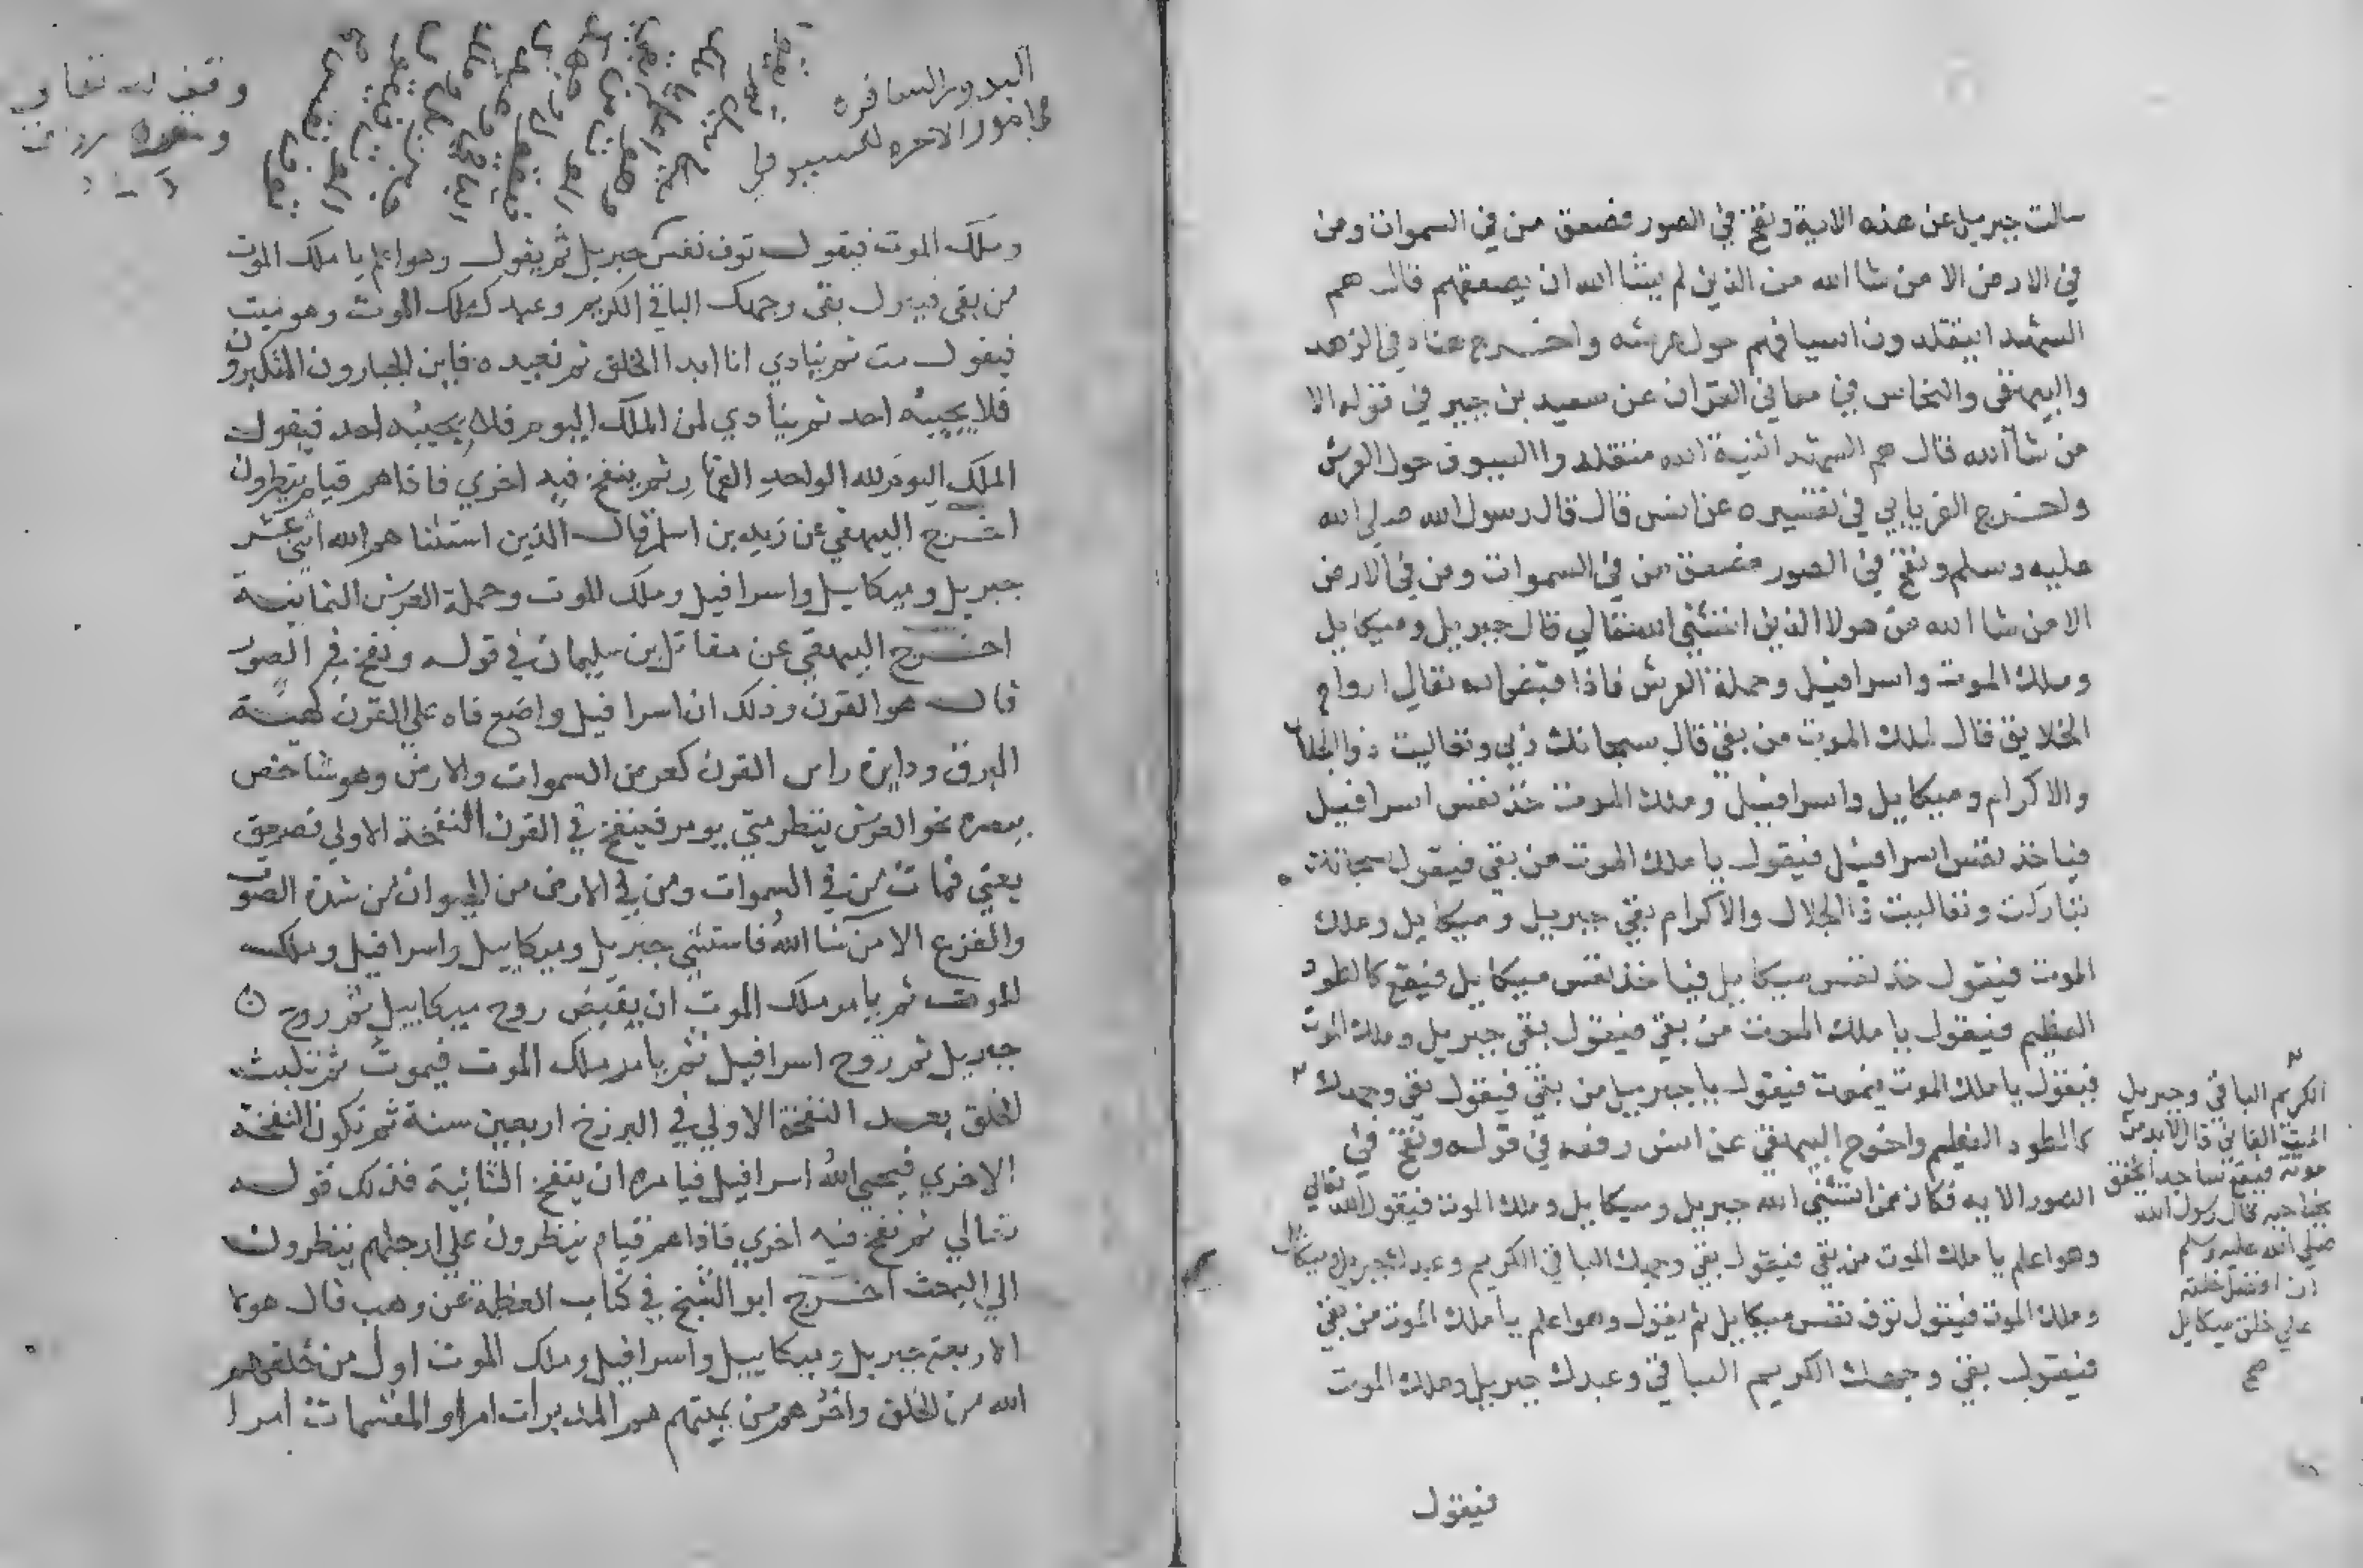 سالت جبريل عن هذه الاية ونفخ في الصور فصعق من في السموات ومن
في الارض الا من شا الله من الذين لم يشا الله ان يصعقهم قال هم
الشهدا يتقلدون اسيافهم حول عرشه واخرج هناد في الزهد
والبيهقي والنحاس في معاني القران عن سعيد بن جبير في قوله الا
من شا الله قال هم الشهدا ثنية الله متقلدوا السيوف حول العرش
واخرج الفريابي في تفسيره عن انس قال قال رسول الله صلي الله
عليه وسلم ونفخ في الصور فصعق من في السموات ومن في الارض
الا من شا الله من هولا الذين استثني الله تعالي قال جبريل وميكايل
وملك الموت واسرافيل وحملة العرش فاذا قبض الله تعالي ارواح
الخلايق قال لملك الموت من بقي قال سبحانك ربي وتعاليت ذو الجلال
والاكرام وميكايل واسرافيل وملك الموت خذ نفس اسرافيل
فياخذ نفس اسرافيل فيقول يا ملك الموت من بقي فيقول سبحانك
تباركت وتعاليت ذا الجلال والاكرام بقي جبريل وميكايل وملك
الموت فيقول خذ نفس ميكايل فياخذ نفس ميكايل فيقع كالطود
العظيم فيقول يا ملك الموت من بقي فيقول بقي جبريل وملك الموت
فيقول يا ملك الموت فيموت فيقول يا جبريل من بقي فيقول بقي وجهك
كالطود العظيم واخرج البيهقي عن انس رفعه في قوله ونفخ في
الصور الايه فكان ممن استثني الله جبريل وميكايل وملك الموت فيقول الله تعالي
وهو اعلم يا ملك الموت من بقي فيقول بقي وجهك الباقي الكريم وعبدك جبريل وميكايل
وملك الموت فيقول توف نفس ميكايل ثم يقول وهو اعلم يا ملك الموت من بقي
فيقول بقي وجهك الكريم الباقي وعبدك جبريل وملك الموت
فيقول
الكريم الباقي وجبريل
الميت الفاني قال لابد من
موته فيقع ساجدا يخفق
بجناحيه قال رسول الله
صلي الله عليه وسلم
ان افضل خلقه
علي خلق ميكايل
صح
البدور السافره
في امور الاخره للسيوطي
وقف لله تعالي
وملك الموت فيقول توف نفس جبريل ثم يقول وهو اعلم يا ملك الموت
من بقي فيقول بقي وجهك الباقي الكريم وعبدك ملك الموت وهو ميت
فيقول مت ثم ينادي انا ابدا الخلق ثم نعيده فاين الجبارون المتكبرون
فلا يجيبه احد ثم ينادي لمن الملك اليوم فلا يجيبه احد فيقول
الملك اليوم لله الواحد القهار ثم ينفخ فيه اخري فاذا هم قيام ينظرون
اخرج البيهقي عن زيد بن اسلم قال الذين استثنا هم الله اثني عشر
جبريل وميكاييل واسرافيل وملك الموت وحملة العرش الثمانية
اخرج البيهقي عن مقاتل بن سليمان في قوله ونفخ في الصور
قال هو القرن وذلك ان اسرافيل واضع فاه علي القرن كهيئة
البوق ودايرة راس القرن كعرض السموات والارض وهو شاخص
ببصره نحو العرش ينتظر متي يومر فينفخ في القرن النفخة الاولي فصعق
يعني فمات من في السموات ومن في الارض من الحيوان من شدة الصوت
والفزع الا من شا الله فاستثني جبريل وميكاييل واسرافيل وملك
الموت ثم يامر ملك الموت ان يقبض روح ميكاييل ثم روح
جبريل ثم روح اسرافيل ثم يامر ملك الموت فيموت ثم تلبث
الخلق بعد النفخة الاولي في البرزخ اربعين سنة ثم تكون النفخة
الاخري فيحيي الله اسرافيل فيامره ان ينفخ الثانية فذلك قوله
تعالي ثم نفخ فيه اخري فاذا هم قيام ينظرون علي ارجلهم ينظرون
الي البعث اخرج ابو الشيخ في كتاب العظمة عن وهب قال هولا
الاربعة جبريل وميكاييل واسرافيل وملك الموت اول من خلقهم
الله من الخلق واخر من يميتهم هم المدبرات امرا والمقسمات امرا